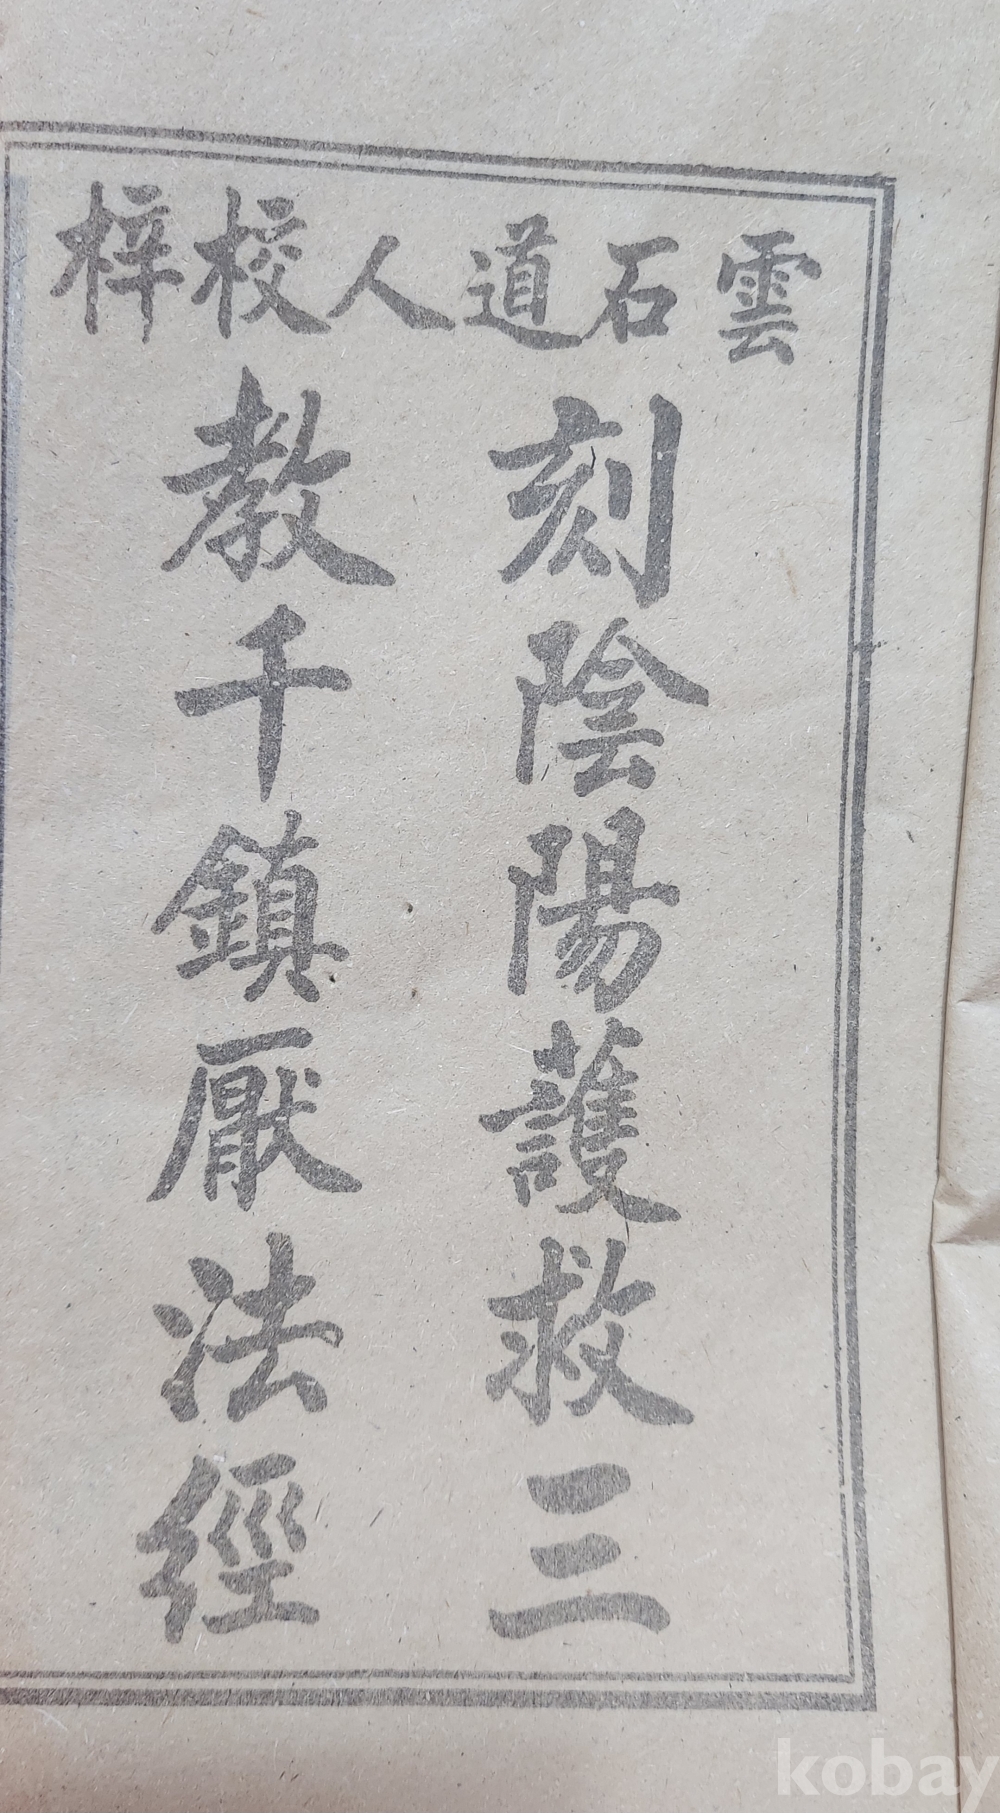 雲石道人校梓
刻陰陽護救三
教千鎮厭法經
kobay